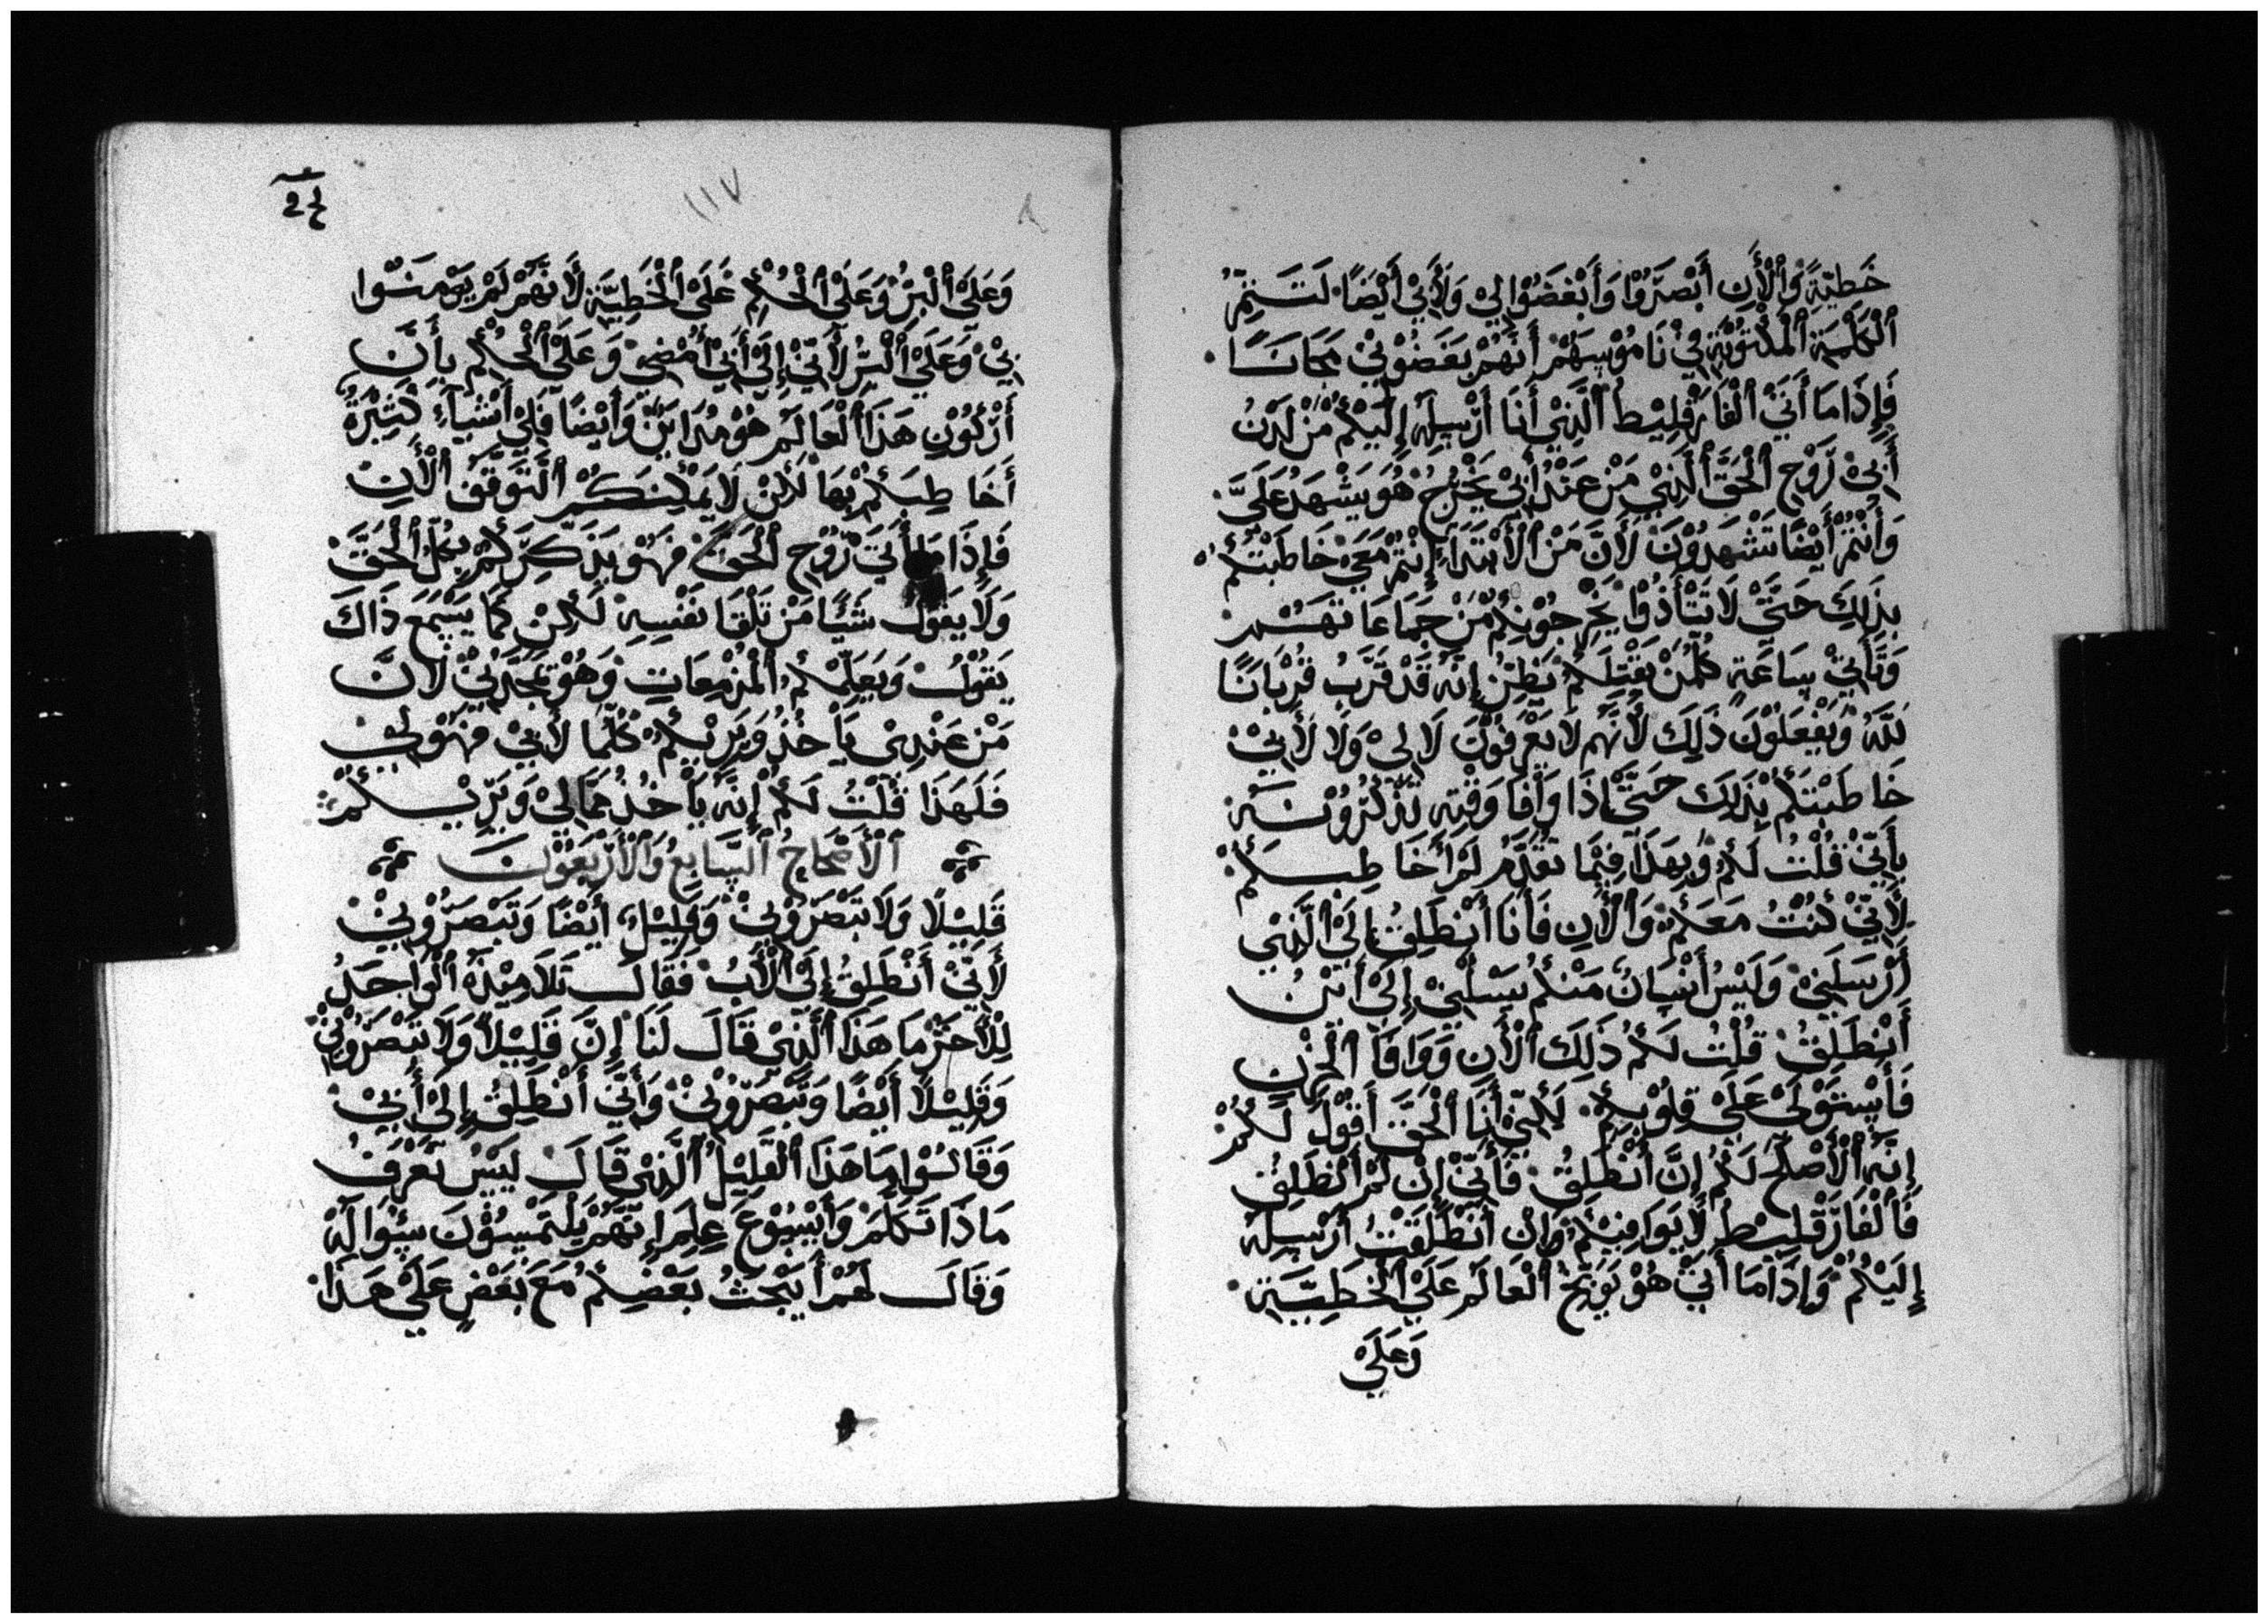 خَطيّةِ وَٱلْأَنِ أَبْصَرُوْا وَأَبْغَضُوْا لِيْ وَلِأَبِيْ أَيْضًا لَتَتِمَّ
ٱلْكَلْمَة ٱلْمَكْتُوْبَة فِيْ نَامُوْسِهِمْ أَنَّهُمْ بَغَضُوْنِيْ مَجَانًا
فَإِذَا مَا أَتَيْ ٱلْفَارَقْلِيْطُ ٱلَّذِيْ أَنَا أَرْسِلَهُ إِلَيْكُمْ مَنْ لَدَنْ
أَبِيْ رَّوْحِ ٱلْحَقَّ ٱلَّذِيْ مَنْ عَنْدْ أَبِيْ يَخْرُجْ هُوَ يَشْهَدُ عَلَيَّ
وَأَنْتُمْ أَيْضًا تَشْهَدُوْنَ لَأَنَّ مَنْ ٱلْأَبْتَدَاءِ إِنْتُمْ مَعَيْ خَاطَبْتُكُمْ
بِذَلِكَ حَتَّيْ لَا تَتَأَذُوْا يَخْرِجُوْنِكُمْ مْنْ جَمَاعَاتَهَمْ
وَتَأْتِيْ سَاعَةٍ كُلُمَنْ يَقْتِلَكُمْ يَظِنْ إِنَّهُ قَدْ قَرَّبُ قُرْبَانًا
لَلَّهُ وَيَفْعَلُوْنَ ذَلِكَ لَأَنَّهُمْ لَا يَعْرَفُوْنَ لَا لِيْ وَلَا لَأَبِيْ
خَاطَبْتَكُمْ بِذَلِكَ حَتَّيْ إِذَا وَافَا وَقْتِه تَذْكُرُوْنَهُ
بِأَنِّيْ قُلْتُ لَكُمْ وَبِهَذَا فِيْمَا تَقَدَّمَ لَمْ أَخَاطِبَكُمْ
لِأَنِّيْ كُنْتُ مَعَكُمْ وَٱلْأَنِ فَأَنَا أَنْطَلِقُ إِلَيْ ٱلَّذِيْ
أَرْسَلَنِيْ وَلَيْسُ أَنْسَانٌ مَنْكُمْ يَسْلَنِيْ إِلَيْ أَيْنْ
أَنْطَلِقُ قُلْتُ لَكُمْ ذَلِكَ ٱلْأَنِ وَوَافَا ٱلْحُزْنِ
فَأَسْتَوْلَيْ عَلَيْ قِلُوْبِكُمْ لَكِنِّيْ أَنَا ٱلْحَقَّ أَقُوْلُ لَكُمْ
إِنَّهُ ٱلْأَصْلَحُ لَكُمْ إِنَّ أَنْطَلِقُ فَأَنِّيْ إِنْ لَمْ أَنْطَلِقُ
فَٱلْفَارَقْلِيْطِ لَا يَوَافِيْكُمْ وَإِنْ أَنْطَلَقْتُ أَرْسِلَهُ
إِلَيْكُمْ وَإِذَا مَا أَتَيْ هُوْ يَوَبِّخُ ٱلْعَالَمْ عَلَيْ ٱلْخَطِيَّة
وَعَلَيْ
١١٧
وَعَلَيْ ٱلْبِرُّ وَعَلَيْ ٱلْحُكْمِ عَلَيْ ٱلْخَطِيَّة لَأَنَّهَمْ لَمْ يَوْمَنُوْا
بِيْ وَعَلَيْ ٱلْبَّرُ لَأَنِّيْ إِلَيْ أَبِيْ أَمْضِيْ وَعَلَيْ ٱلْحُكْمِ بِأَنَّ
أَرْكُوْنِ هَذَا ٱلْعَالَمْ هُوْ مُدَايَنٌ وَأَيْضًا فَلِيْ أَشْيَآءِ كَثِيْرَةُ
أَخَاطِبَكُمْ بِهَا لَكَنْ لَا يَمْكِنَكُمْ ٱلْتَّوَقُّفَ ٱلْأَنِ
فَإِذَا مَا أَتِيَ رَّوْحِ ٱلْحَقَّ فَهُوْ يَذَكِّرِكُمْ بِكُلِ ٱلْحَقَّ
وَلَا يَقُوْل شَيْئًا مَنْ تَلْقَا نَفْسِهِ لَكِنْ كَمَا يَسْمَعَ ذَاكَ
يَقُوْلُ وَيَعَلِّمْكُمْ ٱلْمُزْمِعَاتِ وَهُوْ يَمَجِّدَنِيْ لَأَنَّ
مَنْ عَنْدِيْ يَأْخُذُ وَيَرْيِكُمْ كُلَّمَا لَأَبِيْ فَهُوْ لِيْ
فَلَهَذَا قُلْتُ لَكُمْ إِنَّهُ يَأْخُذُ مَمَّا لِيْ وَيَرِيْكُمْ
ٱلْأَصْحَاحُ ٱلسَّابِعُ وَٱلْأَرْبَعُوْنَ
قَلِيْلًا وَلَا تَبْصَرُوْنِيْ وَقَلِيْلٍ أَيْضًا وَتَبْصَرُوْنِيْ
لَأَنِّيْ أَنْطَلِقُ إِلَيْ ٱلْأَبُ فَقَالَ تَلَامِيْذَهُ ٱلْوَاحَدُ
لِلْأَخَرْ مَا هَذَا ٱلَّذِيْ قَالَ لَنَا إِنَّ قَلِيْلًا وَلَا تَبْصَرُوْنِيْ
وَقَلِيْلًا أَيْضًا وَتَبْصَرُوْنِيْ وَأَنِّيْ أَنْطَلِقُ إِلَيْ أَبِيْ
وَقَالُوْا مَا هَذَا ٱلْقَلِيْلُ ٱلَّذِيْ قَالَ لَيْسُ نَعْرَفُ
مَاذَا تَكَلَمْ وَأَيْسُوْعَ عِلِمَ إِنَّهَمْ يَلْتَمْسُوْنَ سِؤَالَهُ
وَقَالَ لَهُمْ أَيَبْحَثُ بَعْضِكُمْ مَعَ بَعْضٍ عَلَيْ هَذَا